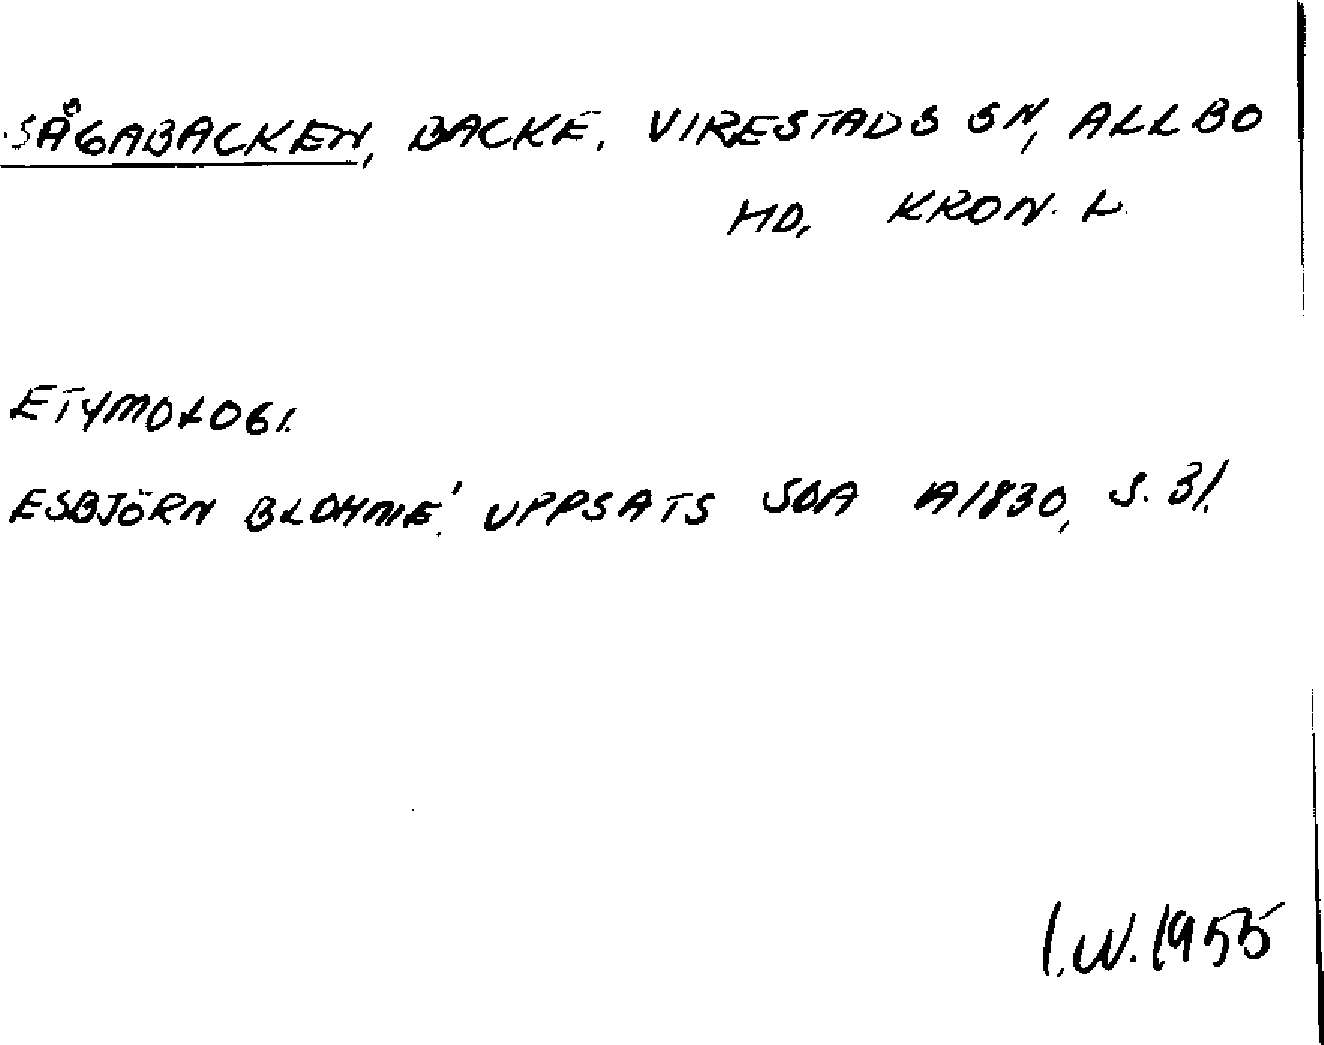 SÅGABACKEN, BACKE. VIRESTADS SN, ALLBO
HD, KRON. L.
ETYMOLOGI.
ESBJÖRN BLOHMÉ: UPPSATS SOA A1830, S. 31.
I.W. 1955